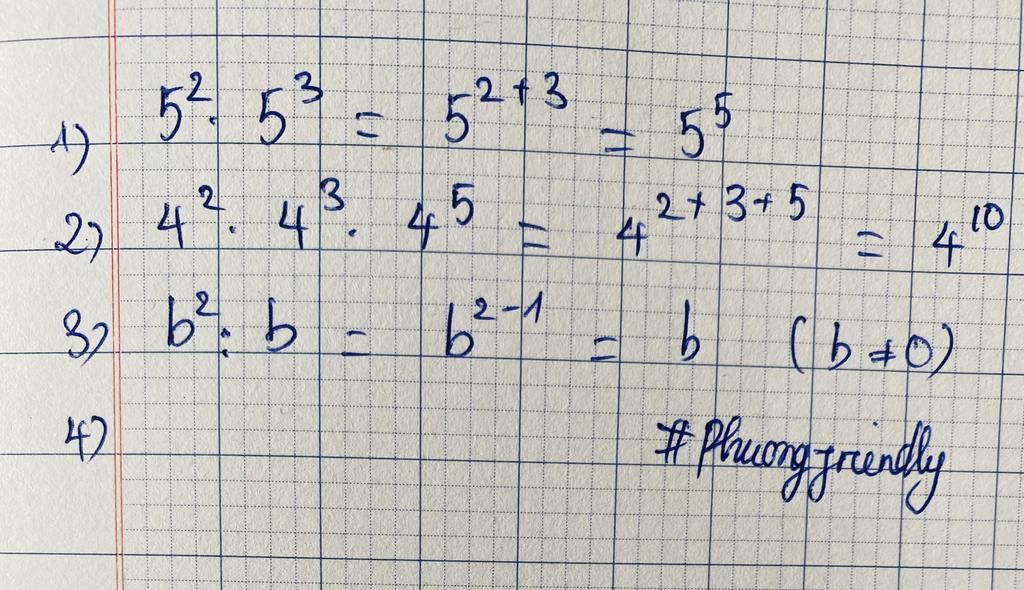 1) 5² · 5³ = 5²⁺³ = 5⁵
2) 4² · 4³ · 4⁵ = 4²⁺³⁺⁵ = 4¹⁰
3) b² : b = b²⁻¹ = b (b ≠ 0)
4) #Phuongfriendly